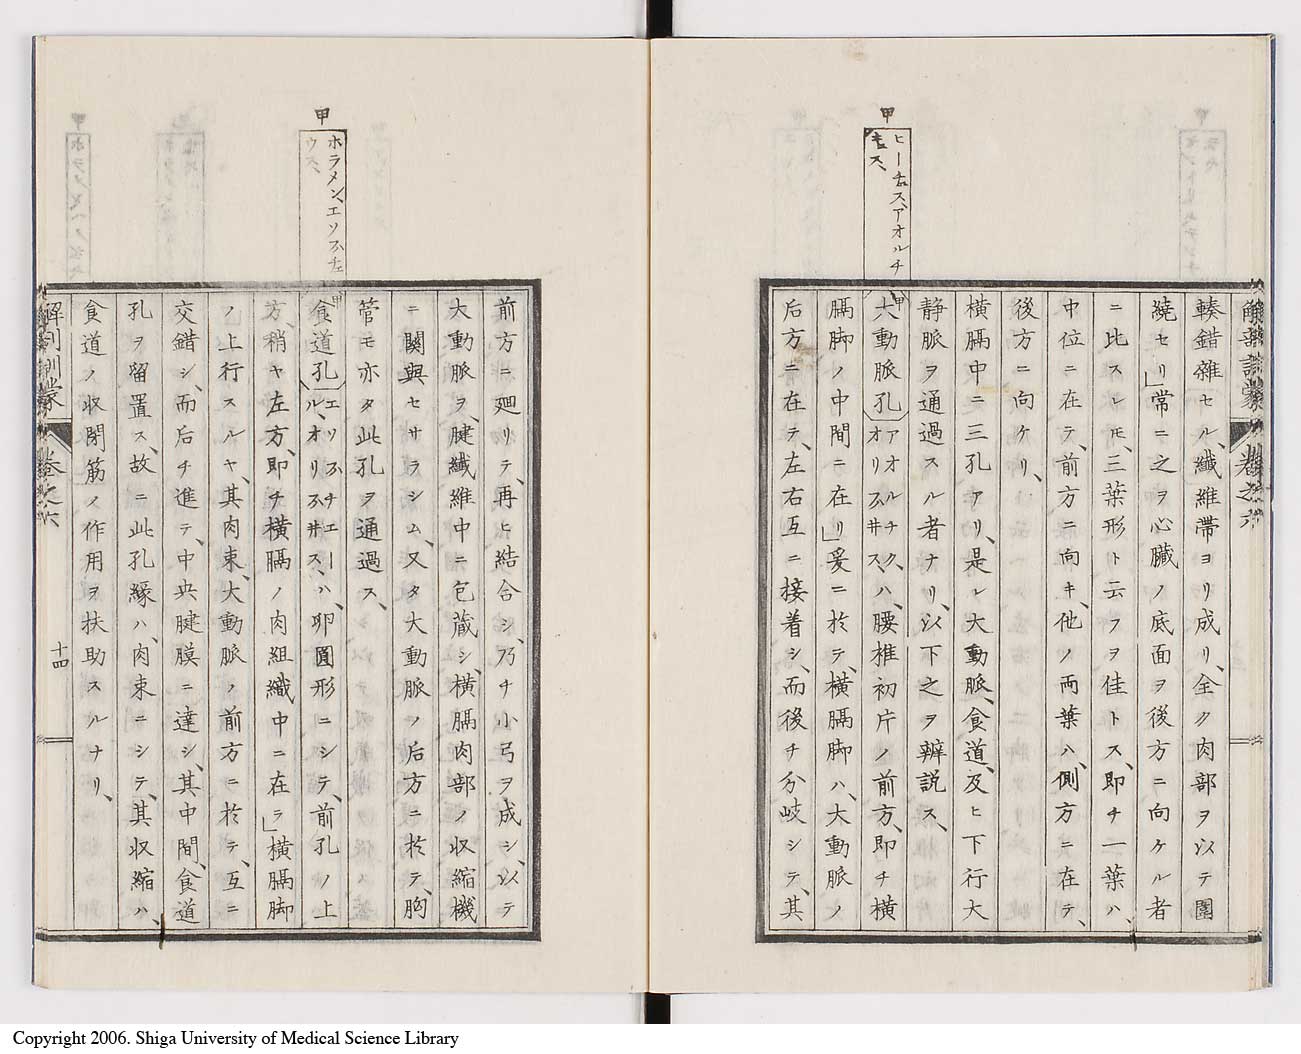 解剖訓蒙 卷之六
甲
ヒーチュス、アオルチ
キス、
輳錯雜セル、纎維帶ヨリ成リ、全ク肉部ヲ以テ圍
繞セリ」常ニ之ヲ心臟ノ底面ヲ後方ニ向ケル者
ニ比スレ𪜈、三葉形ト云フヲ佳トス、即チ一葉ハ、
中位ニ在テ、前方ニ向キ、他ノ両葉ハ、側方ニ在テ、
後方ニ向ケリ、
横膈中ニ三孔アリ、是レ大動脈、食道、及ヒ下行大
静脈ヲ通過スル者ナリ、以下之ヲ辨説ス、
甲
大動脈孔(アオルチク、オリスヰス、)ハ、腰椎初片ノ前方、即チ横
膈脚ノ中間ニ在リ」爰ニ於テ、横膈脚ハ、大動脈ノ
后方ニ在テ、左右互ニ接着シ、而後チ分岐シテ、其
甲
ホラメン、エソフチェ
ウス、
前方ニ廻リテ、再ヒ結合シ、乃チ小弓ヲ成シ、以テ
大動脈ヲ、腱纎維中ニ包蔵シ、横膈肉部ノ収縮機
ニ関與セサラシム、又タ大動脈ノ后方ニ於テ、胸
管モ亦タ此孔ヲ通過ス、
甲
食道孔(エソフチエール、オリスヰス、)ハ、卵圓形ニシテ、前孔ノ上
方、稍ヤ左方、即チ横膈ノ肉組織中ニ在ラ」横膈脚
ノ上行スルヤ、其肉束、大動脈ノ前方ニ於テ、互ニ
交錯シ、而后チ進テ、中央腱膜ニ達シ、其中間、食道
孔ヲ留置ス、故ニ此孔縁ハ、肉束ニシテ、其収縮ハ、
食道ノ収閉筋ノ作用ヲ扶助スルナリ、
解剖訓蒙 卷之六
十四
甲